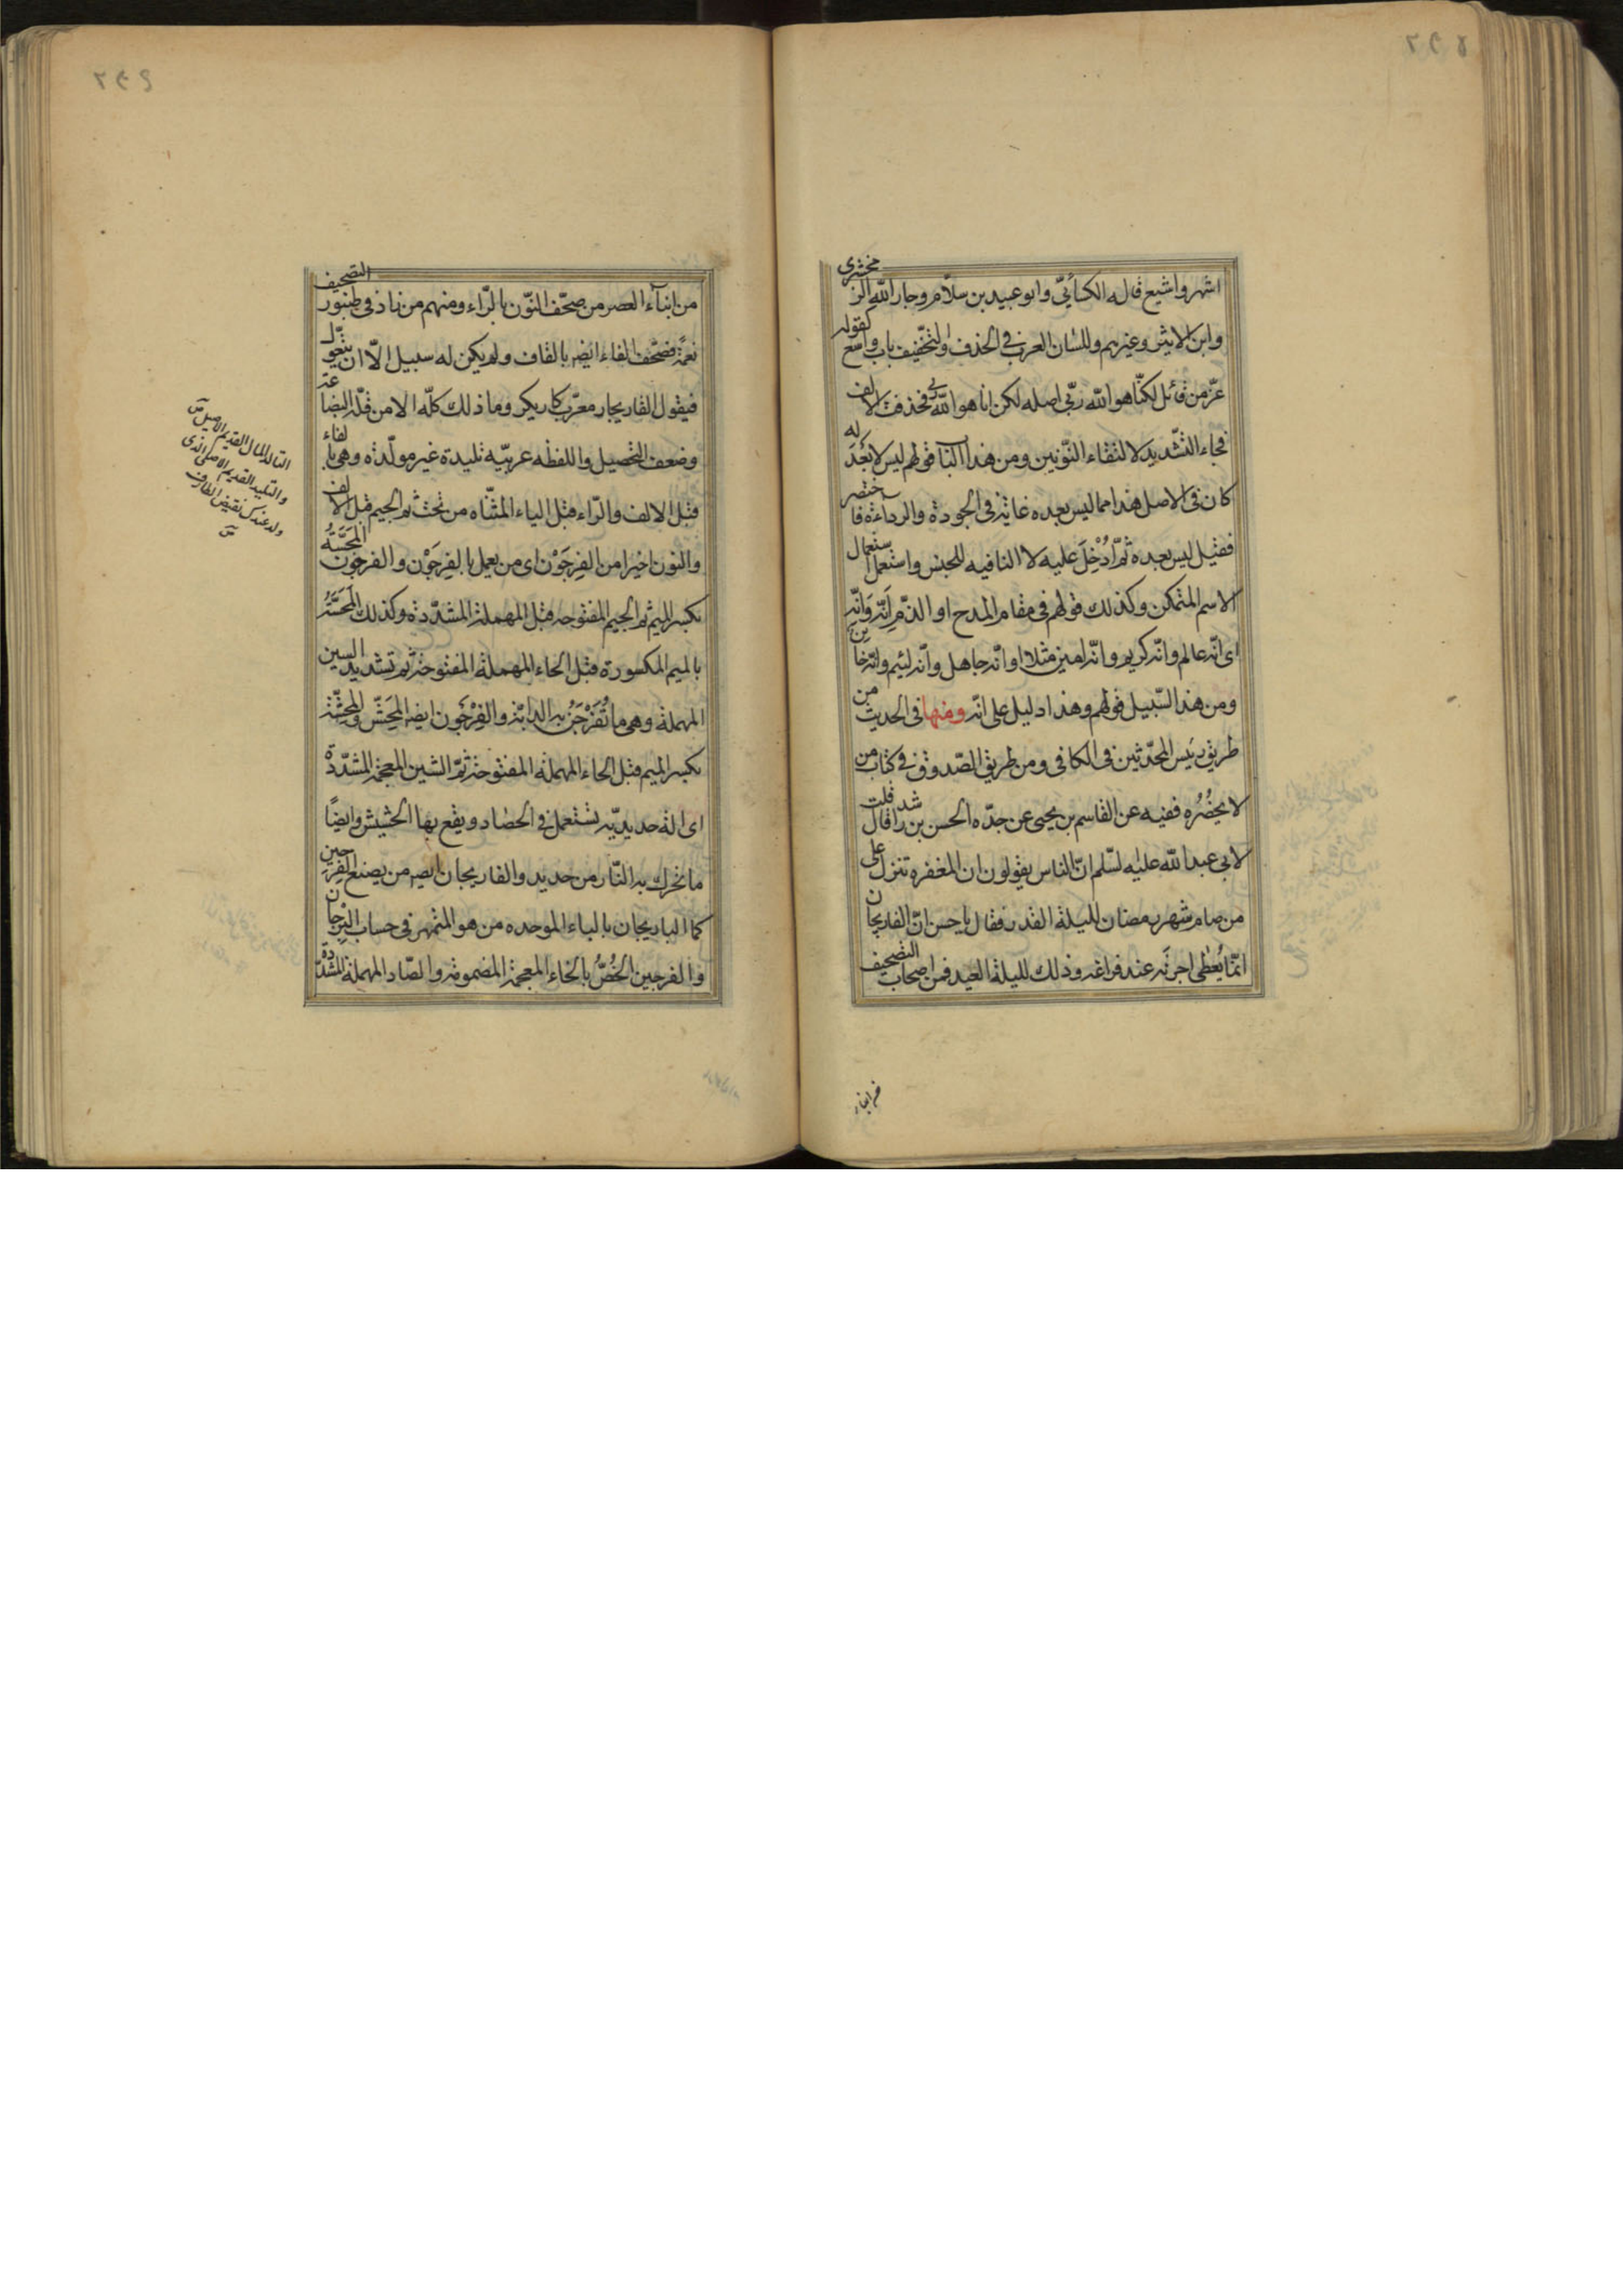 اشهر واشيع قاله الكسائيّ وابو عبيد بن سلاّم وجار اللّه الزمخشرى
وابن الاثير وغيرهم وللسان العرب فى الحذف والتخفيف باب واسع كقوله
عزّ من قائل لكنّا هو اللّه ربّى اصله لكن انا هو اللّه ربى فحذفت الالف
فجاء التشديد لالتقاء النونين ومن هذا الباب قولهم ليس لابعد له
كان فى الاصل هذا مما ليس بعده غاية فى الجودة والرداءة فاختصر
فقيل ليس بعده ثمّ اُدْخِلَ عليه لا النافيه للجنس واستعمل استعمال
الاسم المتمكن وكذلك قولهم فى مقام المدح او الذّم اَنّه وَاِنّه
اى انّه عالم وانّه كريم وانّه امين مثلا او انّه جاهل وانّه لئيم وانّه خاين
ومن هذا السّبيل قولهم وهذا دليل على انّه ومنها فى الحديث من
طريق رئيس المحدّثين فى الكافى ومن طريق الصّدوق فى كتاب من
لا يحضُرُه ففيه عن القاسم بن يحيى عن جدّه الحسن بن راشد قال قلت
لابى عبد اللّه عليه لسّلم انّ الناس يقولون ان المغفرة تنزل على
من صام شهر رمضان لليلة القدر فقال يا حسن انّ الفاريجان
انمّا يُعطى اجرته عند فراغه وذلك لليلة العيد فمن اصحاب التصحيف
من ابناء
من ابنآء العصر من صحّف النّون بالرّاء ومنهم من زاد فى طنبور التصحيف
نغمة فصحّف الفاء ايضه بالقاف ولم يكن له سبيل الاّ ان يتحوّل
فيقول القاريجار معرّب كاريكر وما ذلك كلّه الا من قلّة البضاعة
وضعف التحصيل واللفظه عربيّه تليدة غير مولّدة وهى بالفاء
قبل الالف والرّاء قبل الياء المثنّاه من تحت ثم الجيم قبل الالف
والنون اخيرا من الفِرجَوْن اى من يعمل بالفِرجَوْن والفرجون المَحَسّةُ
بكسر الميم ثم الجيم المفتوحه قبل المهملة المشدّدة وكذلك المَحَسَّةُ
بالميم المكسورة قبل الحاء المهملة المفتوحة ثم تشديد السين
المهملة وهى ما تُفَرْجَنُ به الدابّة والفِرْجَون ايضه المِحَشّ والمحشّة
بكسر الميم قبل الحاء المهمله المفتوحة ثمّ الشين المعجمة المشدّدة
اى الة حديديّه تستعمل فى الحصاد ويقع بها الحشيش وايضًا
ما تحرك به النّار من حديد والفاريجان ايضه من يصنع الفِرجين
كما الباريجان بالباء الموحده من هو المتمهر فى حساب البُرْجان
والفرجين الخُصُّ بالخاء المعجمة المضمومة والصّاد المهملة المشدّدة
التالد المال القديم الاصيل
والتليد القديم الاصلى الذى
ولد عندك نقيض الطارف